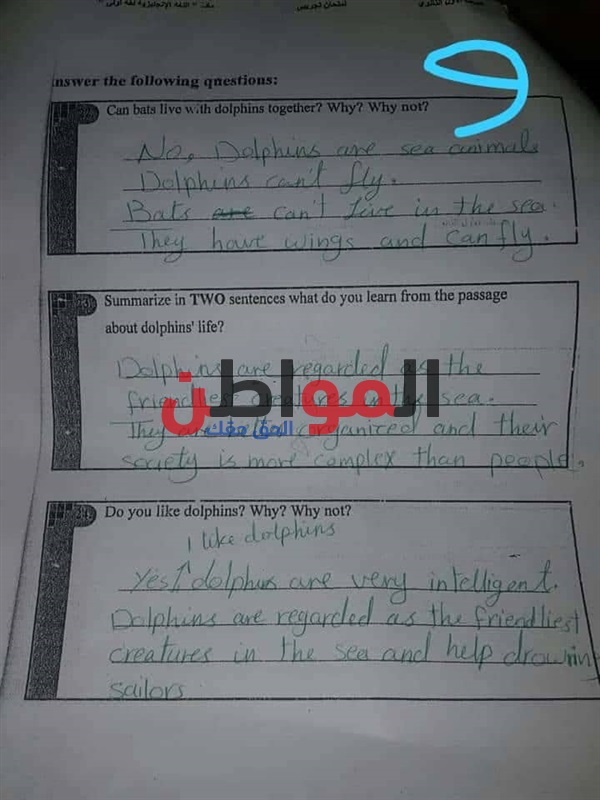 امتحان تجريبى
مادة : اللغة الإنجليزية لغة أولى
9
nswer the following questions:
Can bats live with dolphins together? Why? Why not?
No, Dolphins are sea animals
Dolphins can't fly.
Bats are can't live in the sea.
They have wings and can fly.
23
Summarize in TWO sentences what do you learn from the passage
about dolphins' life?
Dolphins are regarded as the
friendliest creatures in the sea.
They are organized and their
society is more complex than people.
المواطن
الحق معك
24
Do you like dolphins? Why? Why not?
I like dolphins
Yes, dolphins are very intelligent.
Dolphins are regarded as the friendliest
creatures in the sea and help drowning
sailors